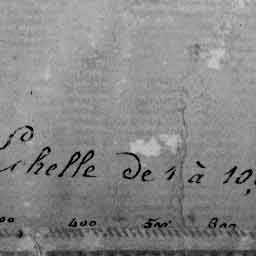 Echelle de 1 à 10,
00, 400 500 800